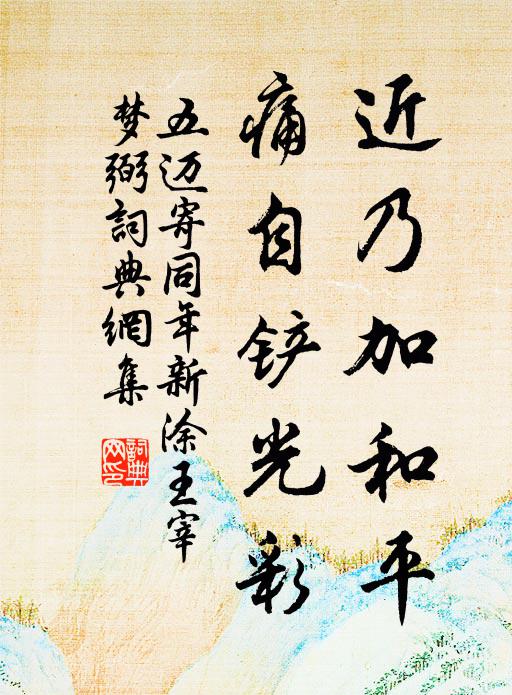 近乃加和平
痛自铲光彩
五迈寄同年新涂王宰
梦弼詞典網集
詞典網印